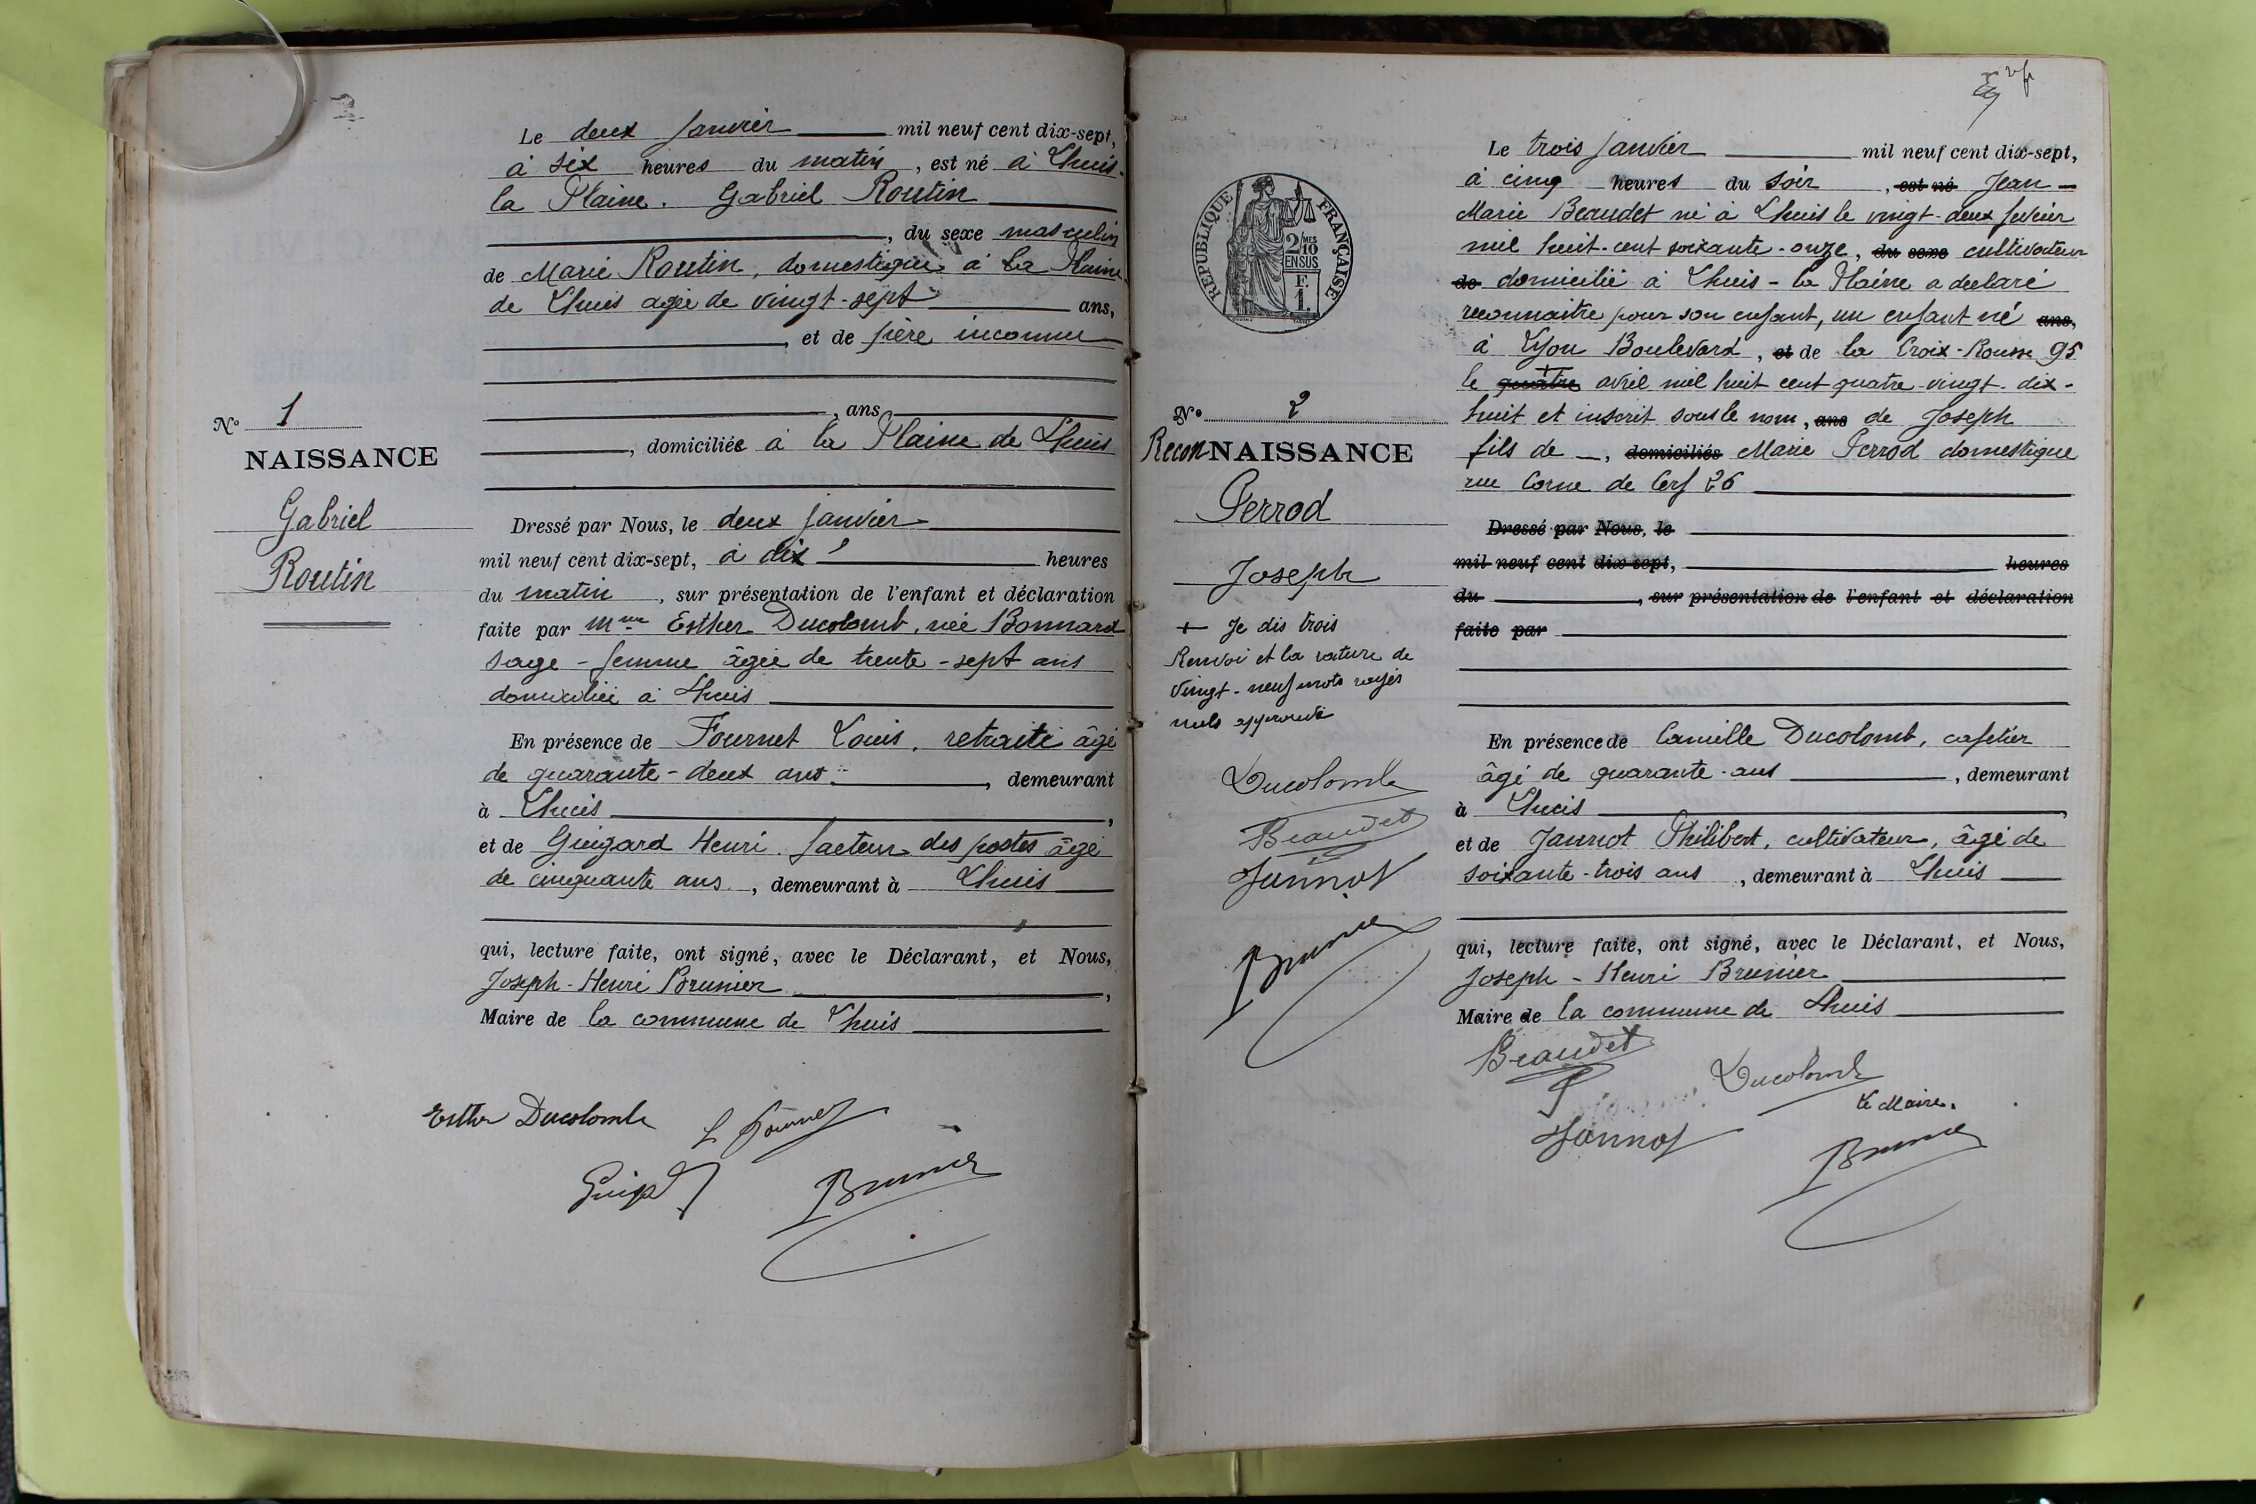 Le deux Janvier mil neuf cent dix-sept,
à six heures du matin, est né à Lhuis-
la Plaine. Gabriel Routin
, du sexe masculin
de Marie Routin, domestique à la Plaine
de Lhuis agée de vingt-sept ans,
, et de père inconnu
, ans
, domiciliée à la Plaine de Lhuis
N° 1
NAISSANCE
Gabriel
Routin
Dressé par Nous, le deux janvier
mil neuf cent dix-sept, à dix heures
du matin, sur présentation de l'enfant et déclaration
faite par Mme Esther Ducolomb, née Bonnard
sage-femme âgée de trente-sept ans
domiciliée à Lhuis
En présence de Fournet Louis, retraité âgé
de quarante-deux ans, demeurant
à Lhuis,
et de Guigard Henri facteur des postes âgé
de cinquante ans, demeurant à Lhuis
qui, lecture faite, ont signé, avec le Déclarant, et Nous,
Joseph-Henri Brunier,
Maire de la commune de Lhuis
Esther Ducolomb
L Fournet
Brunier
RÉPUBLIQUE FRANÇAISE
2/MES
10
EN SUS
F.
1.
N° 2
ReconNAISSANCE
Perrod
Joseph
+ Je dis trois
Renvoi et la rature de
vingt-neuf mots rayés
nuls approuvé
Ducolomb
Beaudet
Jannot
Brunier
Le trois Janvier mil neuf cent dix-sept,
à cinq heures du soir, est né Jean-
Marie Beaudet né à Lhuis le vingt-deux février
mil huit-cent soixante-onze, du sexe cultivateur
de domicilié à Lhuis-la Plaine a déclaré
reconnaitre pour son enfant, un enfant né ans,
à Lyon Boulevard, et de la Croix-Rousse 95
le quatre + avril mil huit cent quatre-vingt-dix-
huit et inscrit sous le nom, ans de Joseph
fils de -, domiciliés Marie Perrod domestique
rue Corne de Cerf 26
Dressé par Nous, le
mil neuf cent dix-sept, heures
du , sur présentation de l'enfant et déclaration
faite par
En présence de Camille Ducolomb, cafetier
âgé de quarante-ans, demeurant
à Lhuis
et de Jannot Philibert, cultivateur, âgé de
soixante-trois ans, demeurant à Lhuis
qui, lecture faite, ont signé, avec le Déclarant, et Nous,
Joseph-Henri Brunier
Maire de la commune de Lhuis
Beaudet
Ducolomb
Le Maire.
Jannot
Brunier